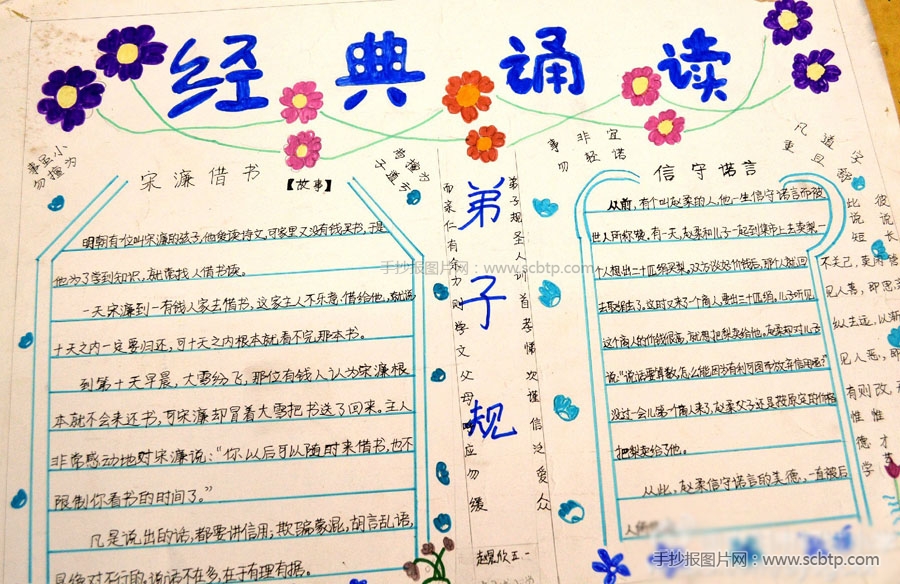 经典诵读
宋濂借书
【故事】
明朝有一位叫宋濂的孩子,他爱读诗文,可家里又没有钱买书,于是
他为了学到知识,就常找人借书读。
一天宋濂到一有钱人家去借书,这家主人不乐意借给他,就说
十天之内一定要归还,可十天之内根本就看不完那本书。
到第十天早晨,大雪纷飞,那位有钱人认为宋濂根
本就不会来还书,可宋濂却冒着大雪把书送了回来,主人
非常感动地对宋濂说:“你以后可以随时来借书,也不
限制你看书的时间了。”
凡是说出的话,都要讲信用,欺骗蒙混,胡言乱语,
是绝对不行的,说话不在多,在于有理有据。
事虽小
勿擅为
苟擅为
子道亏
弟子规圣人训首孝悌次谨信泛爱众
弟子规
而亲仁有余力则学文父母呼应勿缓
事非宜
勿轻诺
信守诺言
从前,有个叫赵柔的人,他一生信守诺言而被
世人所称颂。有一天,赵柔和儿子一起到集市上去卖梨,一
个人想出二十匹绢买梨,双方谈好价钱后,那个人就回
去取绢去了,这时又来了个商人要出三十匹绢。儿子听见
这个商人的价钱很高,就想把梨卖给他,赵柔却对儿子
说:“说话要算数,怎么能因为有利可图而放弃信用呢?”
没过一会儿第一个商人来了,赵柔父子还是按原定的价格
把梨卖给了他。
从此,赵柔信守诺言的美德,一直被后
凡道字
彼说长
此说短
不关己,莫闲管
见人善,即思
纵去远,以渐
见人恶,即
有则改,
惟德学
惟才艺
手抄报图片网:www.scbtp.com
手抄报图片网:www.scbtp.com